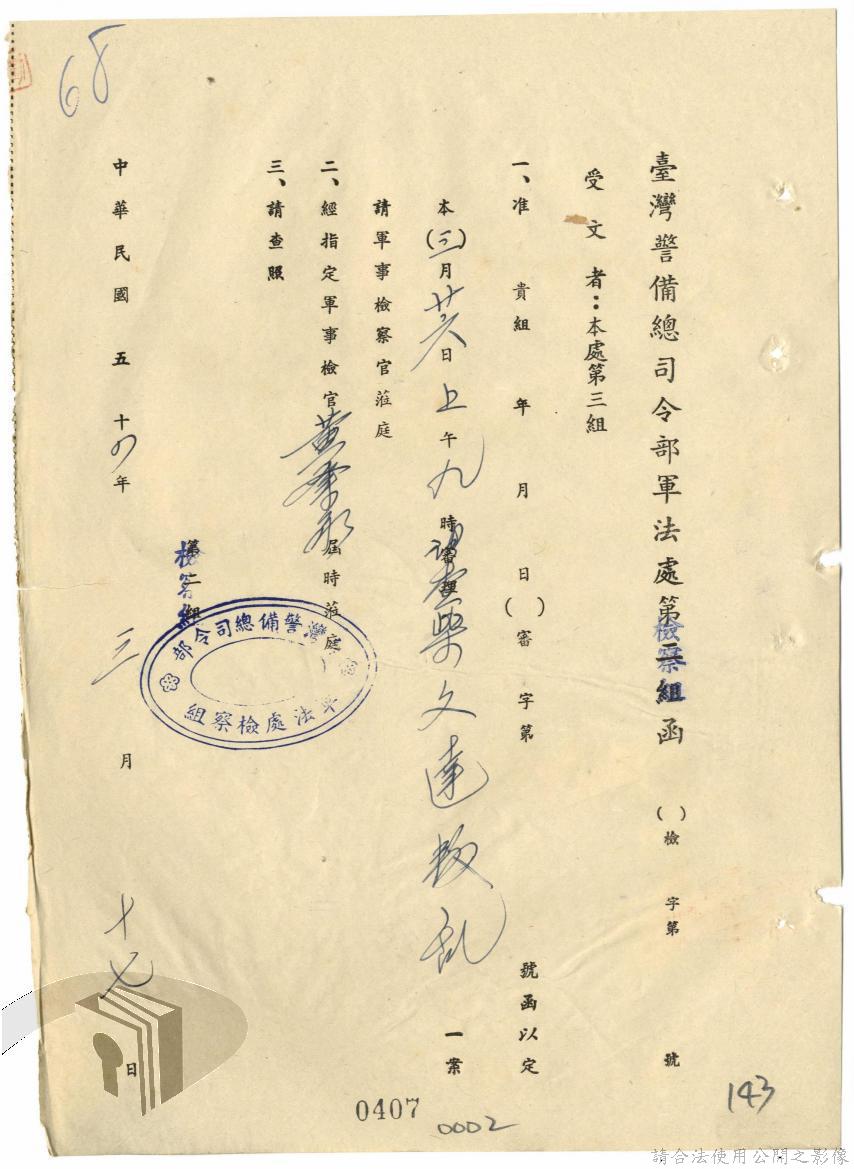 68
臺灣警備總司令部軍法處第二組函 ( )檢 字第 號
檢察組
受文者：本處第三組
一、准 貴組 年 月 日( )審 字第 號函以定
本(三)月廿六日上午九時審理調查柴文達叛乱一案
請軍事檢察官蒞庭
二、經指定軍事檢察官黃 屆時蒞庭
三、請查照
第二組
檢察組
臺灣警備總司令部
軍法處檢察組
中華民國五十四年三月十七日
0407
0002
143
請合法使用公開之影像